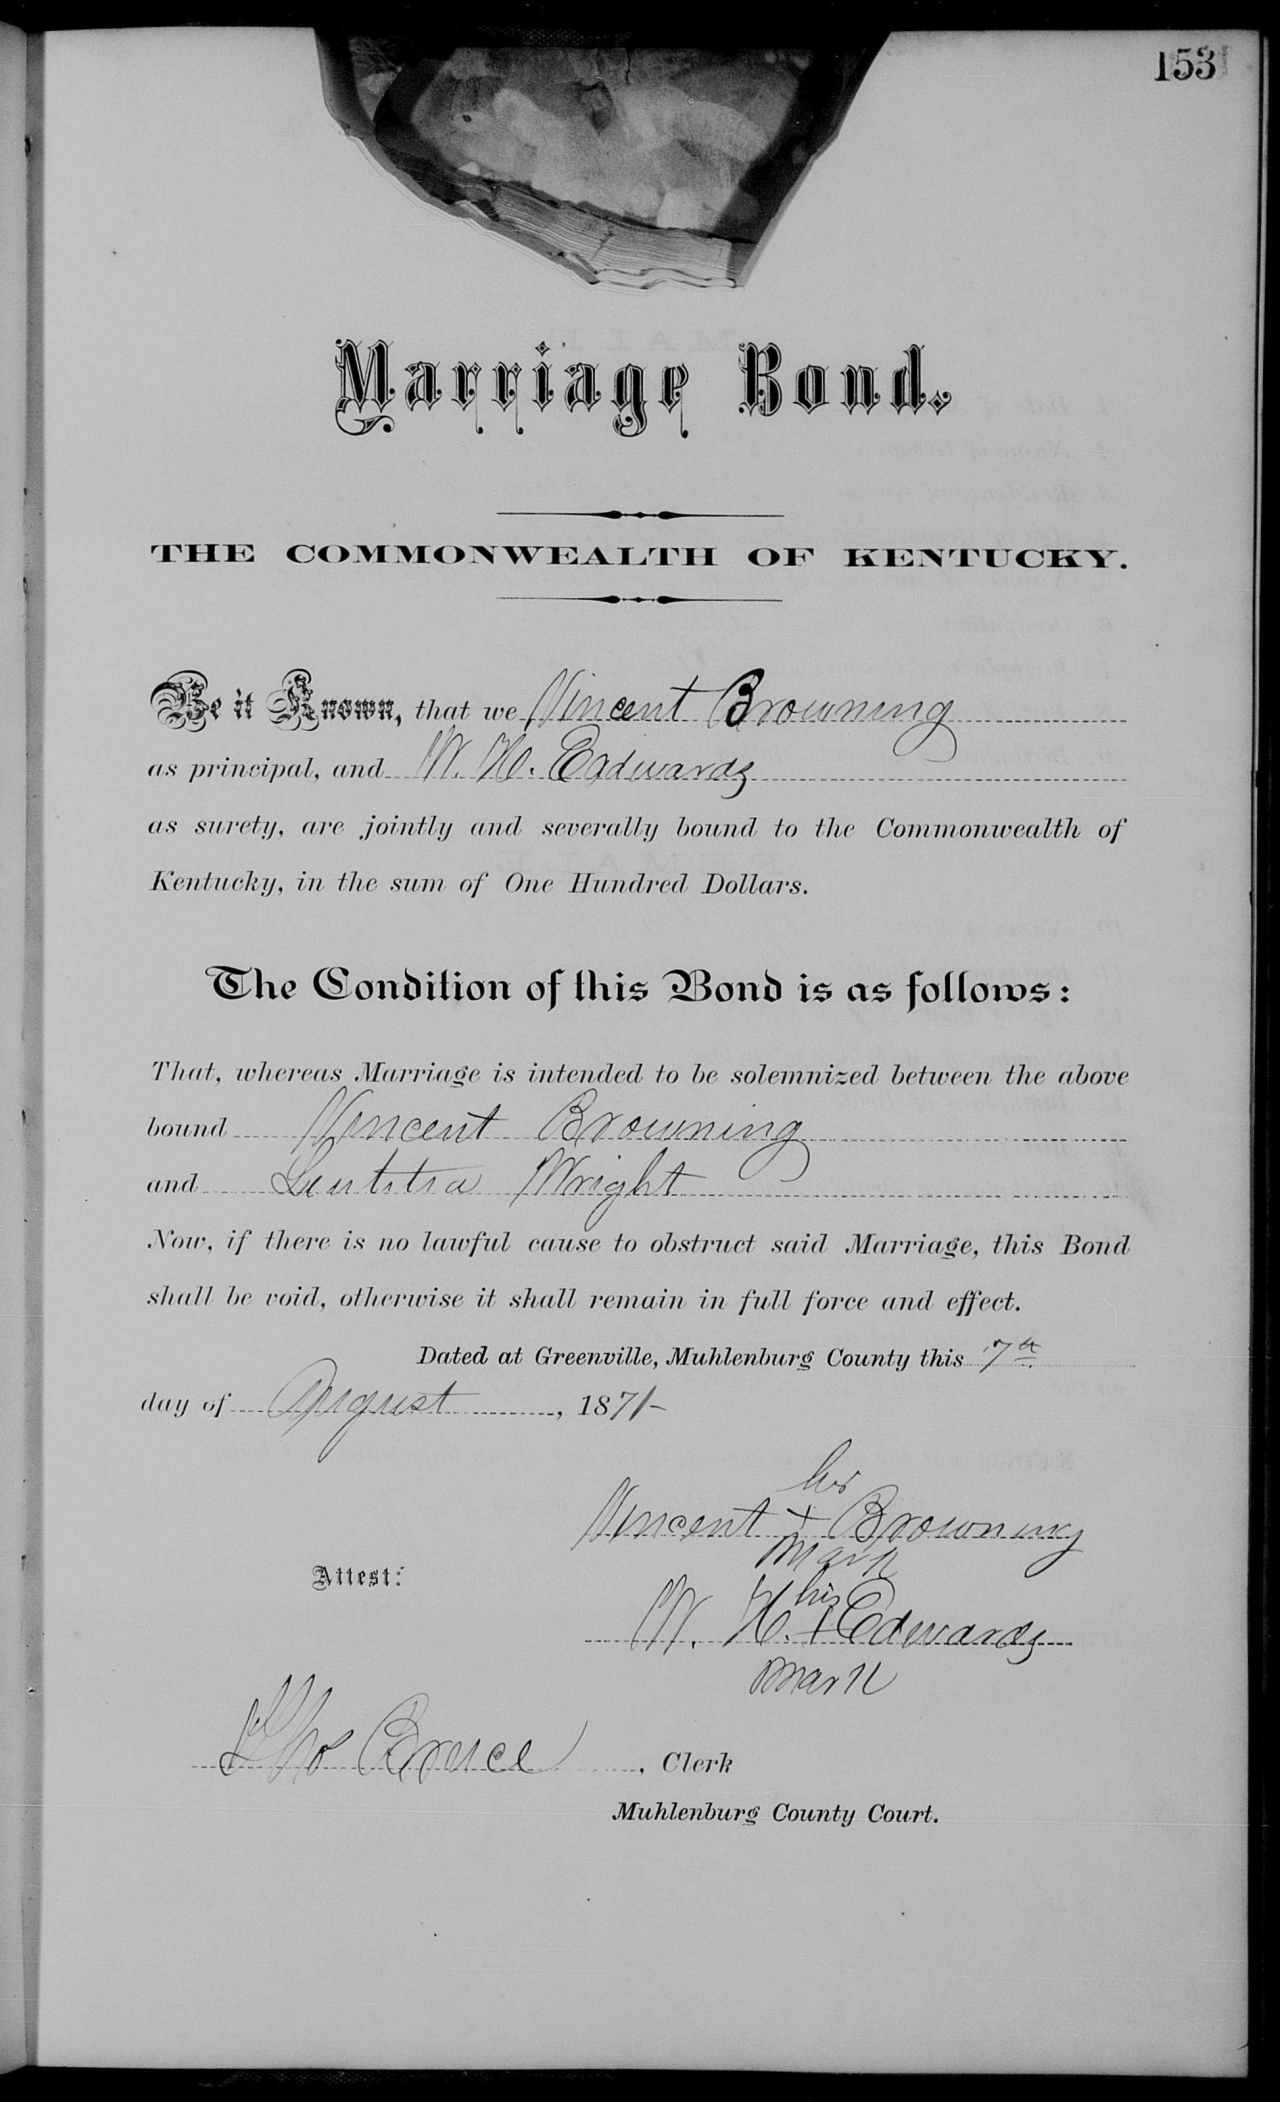 153
Marriage Bond.
THE COMMONWEALTH OF KENTUCKY.
Be it Known, that we Vincent Browning
as principal, and W. H. Eadwards
as surety, are jointly and severally bound to the Commonwealth of
Kentucky, in the sum of One Hundred Dollars.
The Condition of this Bond is as follows:
That, whereas Marriage is intended to be solemnized between the above
bound Vincent Browning
and Wright
Now, if there is no lawful cause to obstruct said Marriage, this Bond
shall be void, otherwise it shall remain in full force and effect.
Dated at Greenville, Muhlenburg County this 7th
day of August, 1871-
his
Vincent + Browning
mark
Attest:
his
W. H. + Edwards
mark
Tho Bruce, Clerk
Muhlenburg County Court.